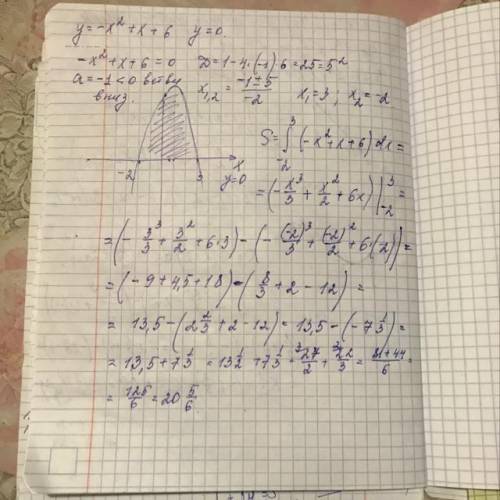 y=-x²+x+6   y=0.
-x²+x+6=0   D=1-4·(-1)·6=25=5²
a=-1<0 ветви вниз.   x₁,₂ = (-1±5)/-2   x₁=3; x₂=-2
-2   3   x   y=0
S=∫₋₂³ (-x²+x+6)dx=
=(-x³/3 + x²/2 + 6x)|₋₂³ =
=(-3³/3 + 3²/2 + 6·3) - (-(-2)³/3 + (-2)²/2 + 6·(-2))=
=(-9+4,5+18)-(8/3+2-12)=
=13,5-(2 2/3+2-12)=13,5-(-7 1/3)=
=13,5+7 1/3=13 1/2+7 1/3=27/2+22/3=(81+44)/6=
=125/6=20 5/6